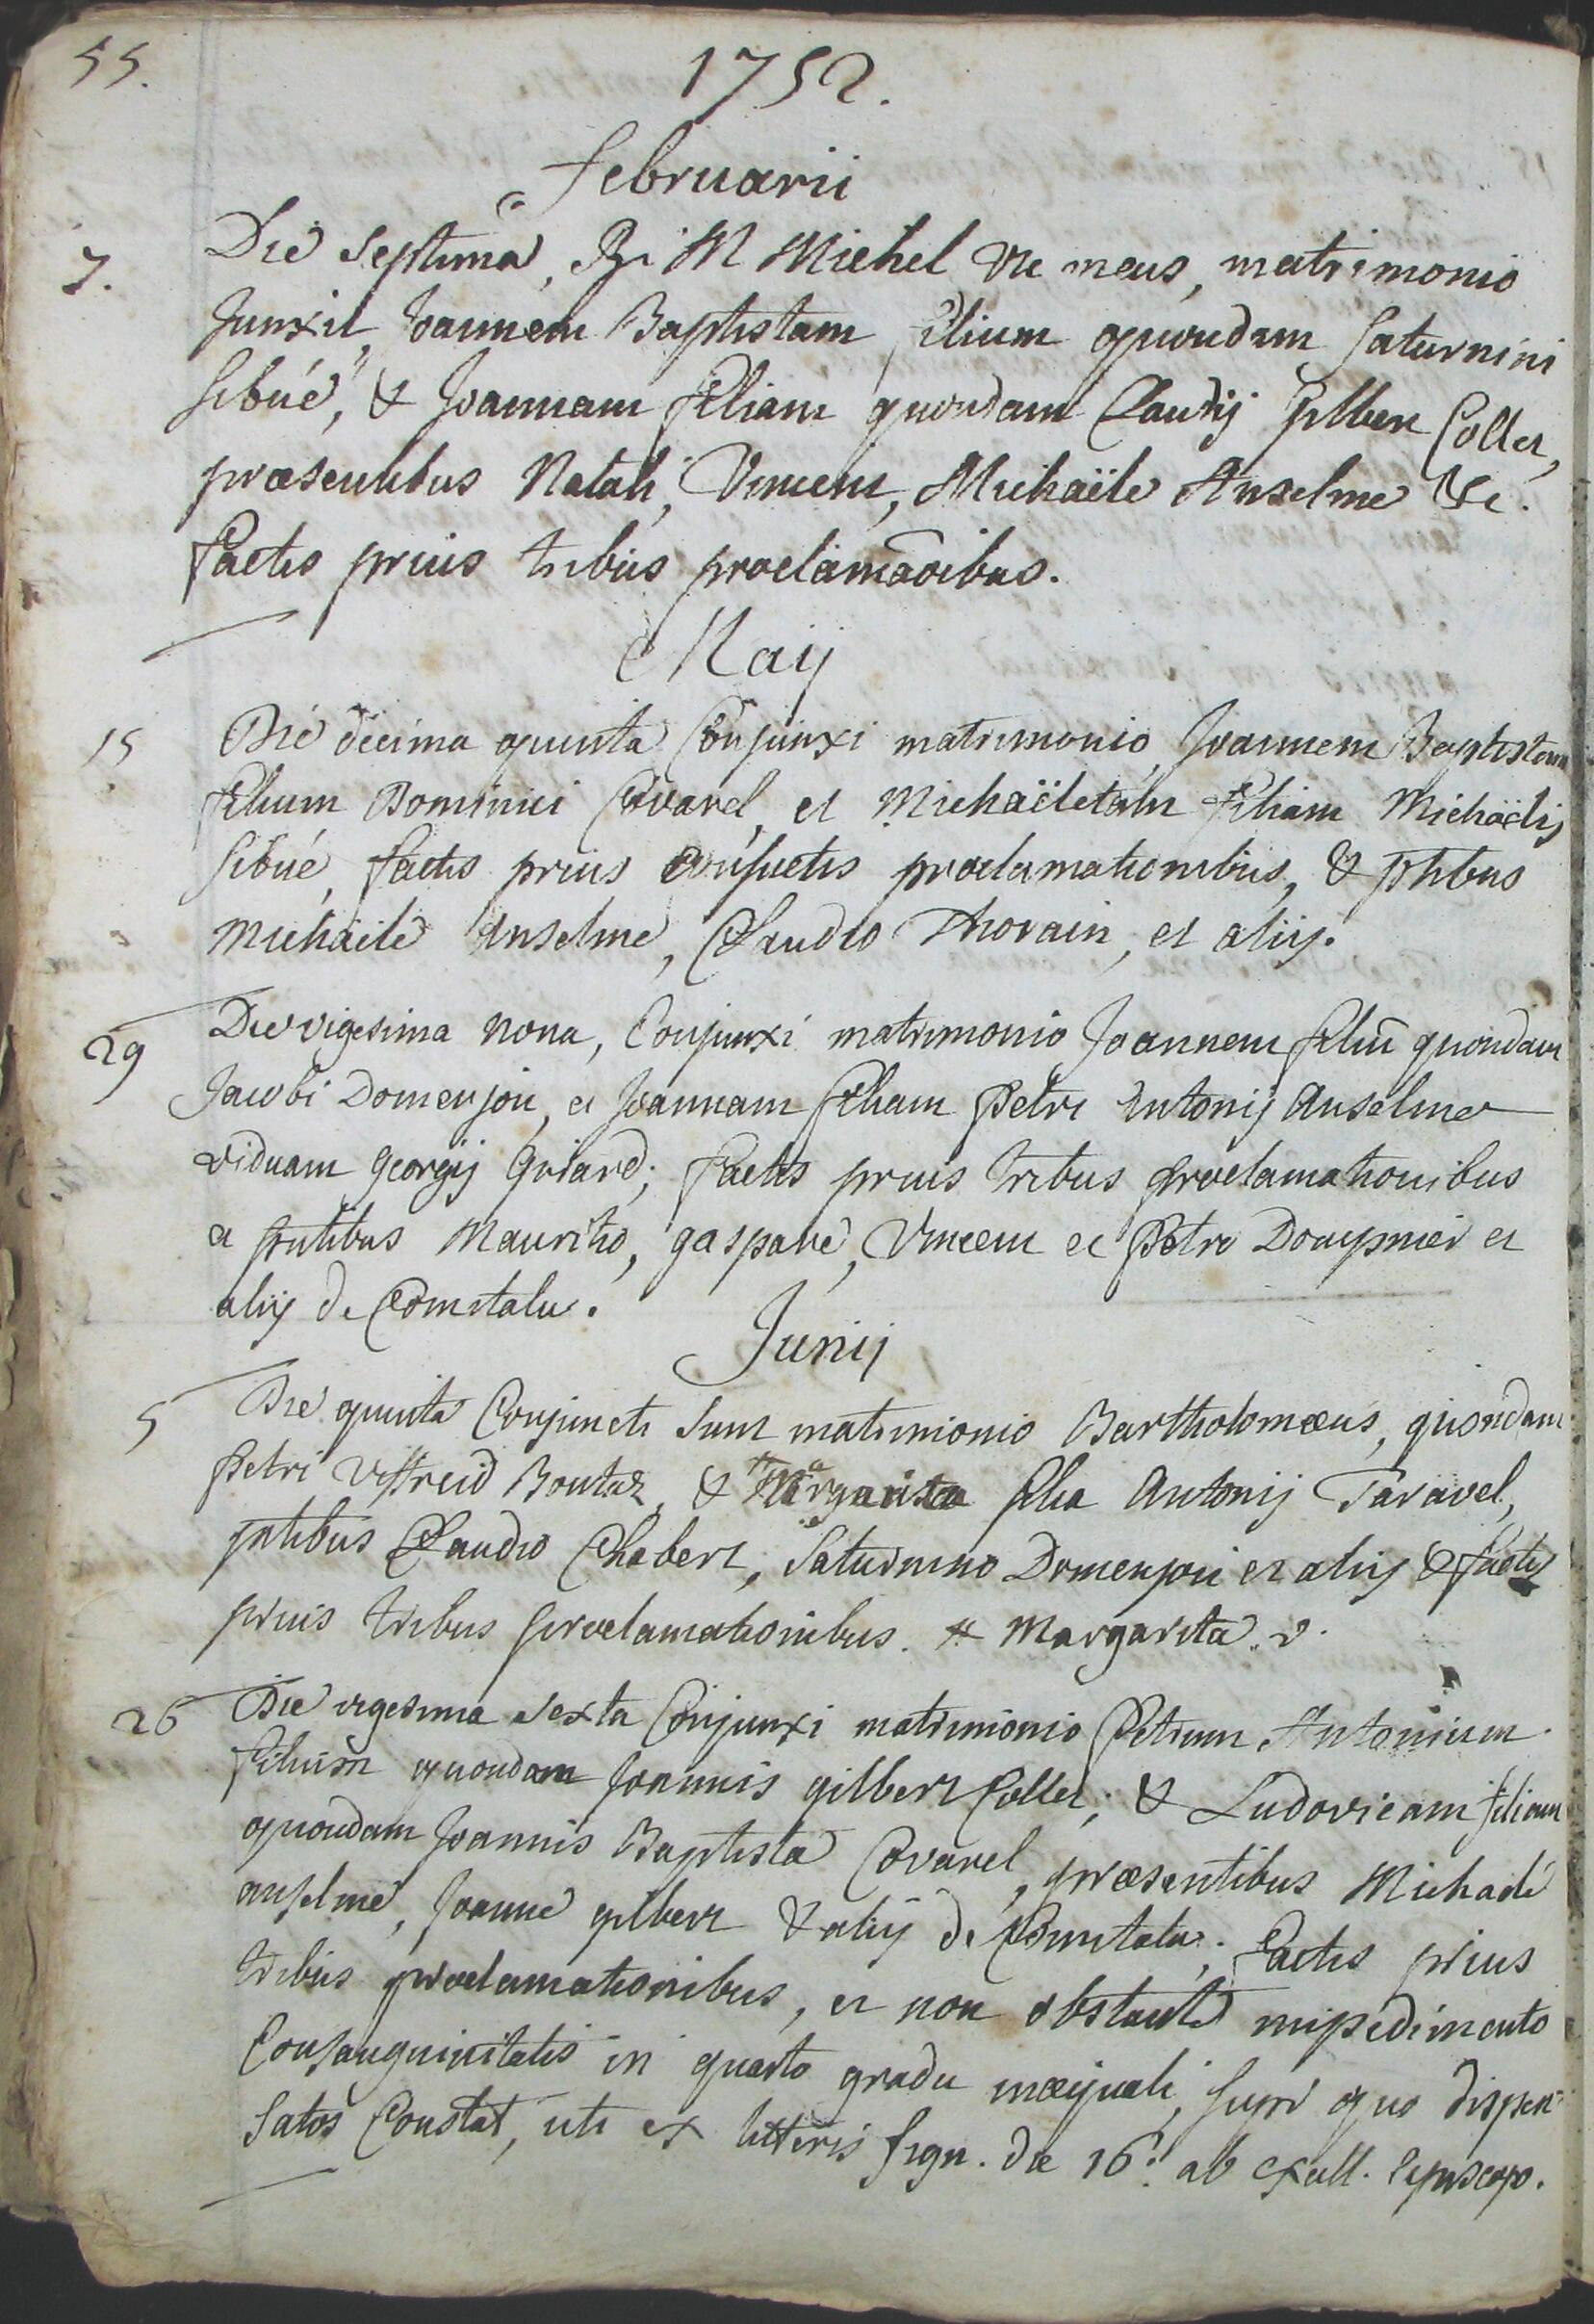 55.
1752.
Februarii
7. Die septima, R. M Michel vic meus, matrimonio
Junxit Joannem Baptistam filium quondam Saturnini
Sibué, & Joannam filiam quondam Claudij Gilbert Collet,
praesentibus Natali, Vincent, Michaële Anselme &c.
factis prius tribus proclamaoibus.
Maij
15 Die decima quinta Conjunxi matrimonio Joannem Baptistam
filium Dominici Covarel, et Michaëletam filiam Michaëlis
Sibué, factis prius consuetis proclamationibus, & ptibus
Michaële Anselme, Claudio Thovain, et alijs.
29 Die vigesima nona, Conjunxi matrimonio Joannem filiū quondam
Jacobi Domenjon, et Joannam filiam Petri Antonij Anselme
viduam Georgij Griard; factis prius tribus proclamationibus
et pntibus Mauritio, gaspare, Vincent et Petro Dompnier et
alijs de Comitatu.
Junij
5 Die quinta Conjuncti sunt matrimonio Bartholomæus, quondam
Petri Viffreid Boutaz, & Margarita filia Antonij Taravel,
ptibus Claudio Chabert, Saturnino Domenjon et alijs & factis
prius tribus proclamationibus. # Margarita. v.
26 Die vigesima sexta Conjunxi matrimonio Petrum Antonium
filium quondam Joannis gilbert Collet; & Ludovicam filiam
quondam Joannis Baptista Covarel, præsentibus Michaele
anselme, Joanne gilbert & alijs de Comitatu. Factis prius
tribus proclamationibus, et non obstante impedimento
Consanguinitatis in quarto gradu inæquali, super quo dispen
satos Constat, uti ex litteris sign. die 16.ª ab exell. Episcopo.